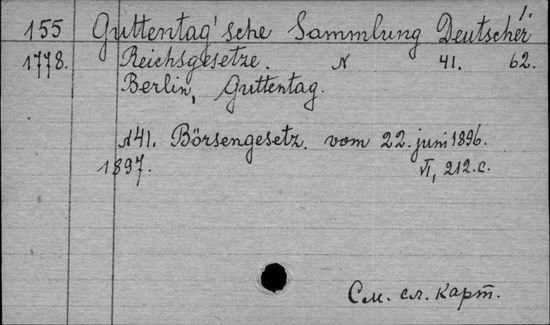 1.
155 Guttentag'sche Sammlung Deutscher
1778. Reichsgesetze. N 41. 62.
Berlin, Guttentag.
N 41. Börsengesetz. vom 22. juni 1896.
1897. VI, 212.c.
См. сл. карт.